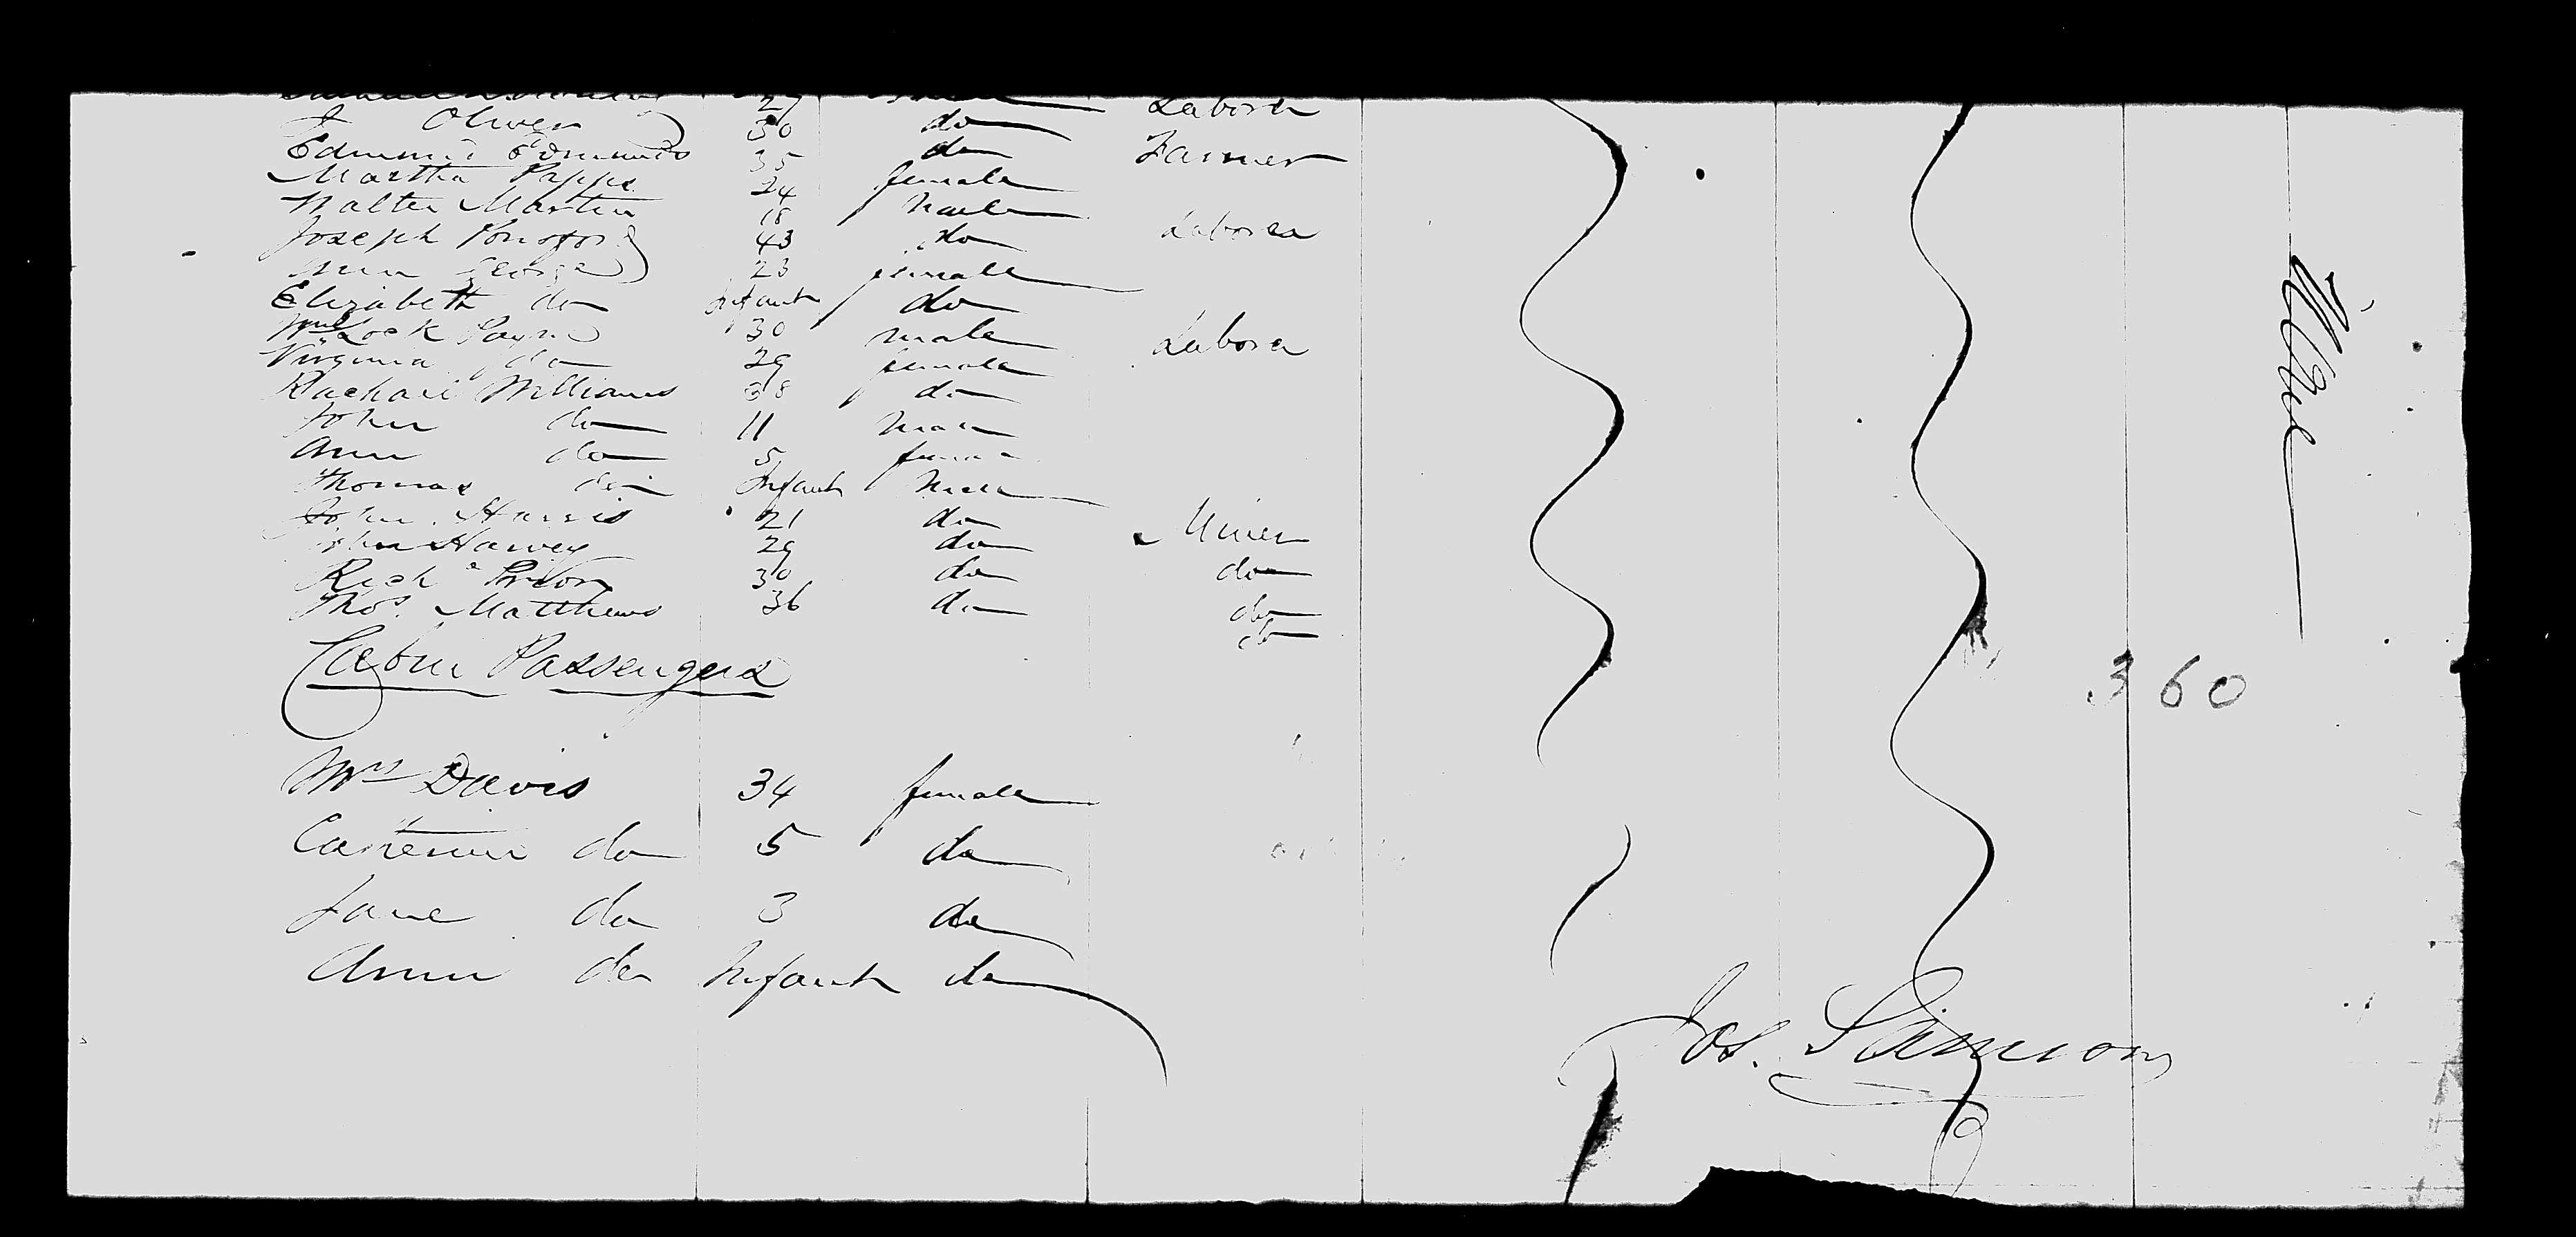 29 Labora
J Oliver 30 do
Edmund Edmunds 35 do Farmer
Martha Papps 24 female
Walter Martin 18 male
Joseph 43 do Labora
Ann George 23 female
Elizabeth do Infant do
Wm Lock Payne 30 male Labora
Virginia do 29 female
Rachael Williams 38 do
John do 11 male
Ann do 5 female
Thomas do Infant male
John Harris 21 do Miner
John Harvey 29 do do
Richd 30 do do
Thos. Matthews 36 do do
Cabin Passengers
Mrs Davis 34 female
Catherine do 5 do
Jane do 3 do
Ann do Infant do
360
Jos.